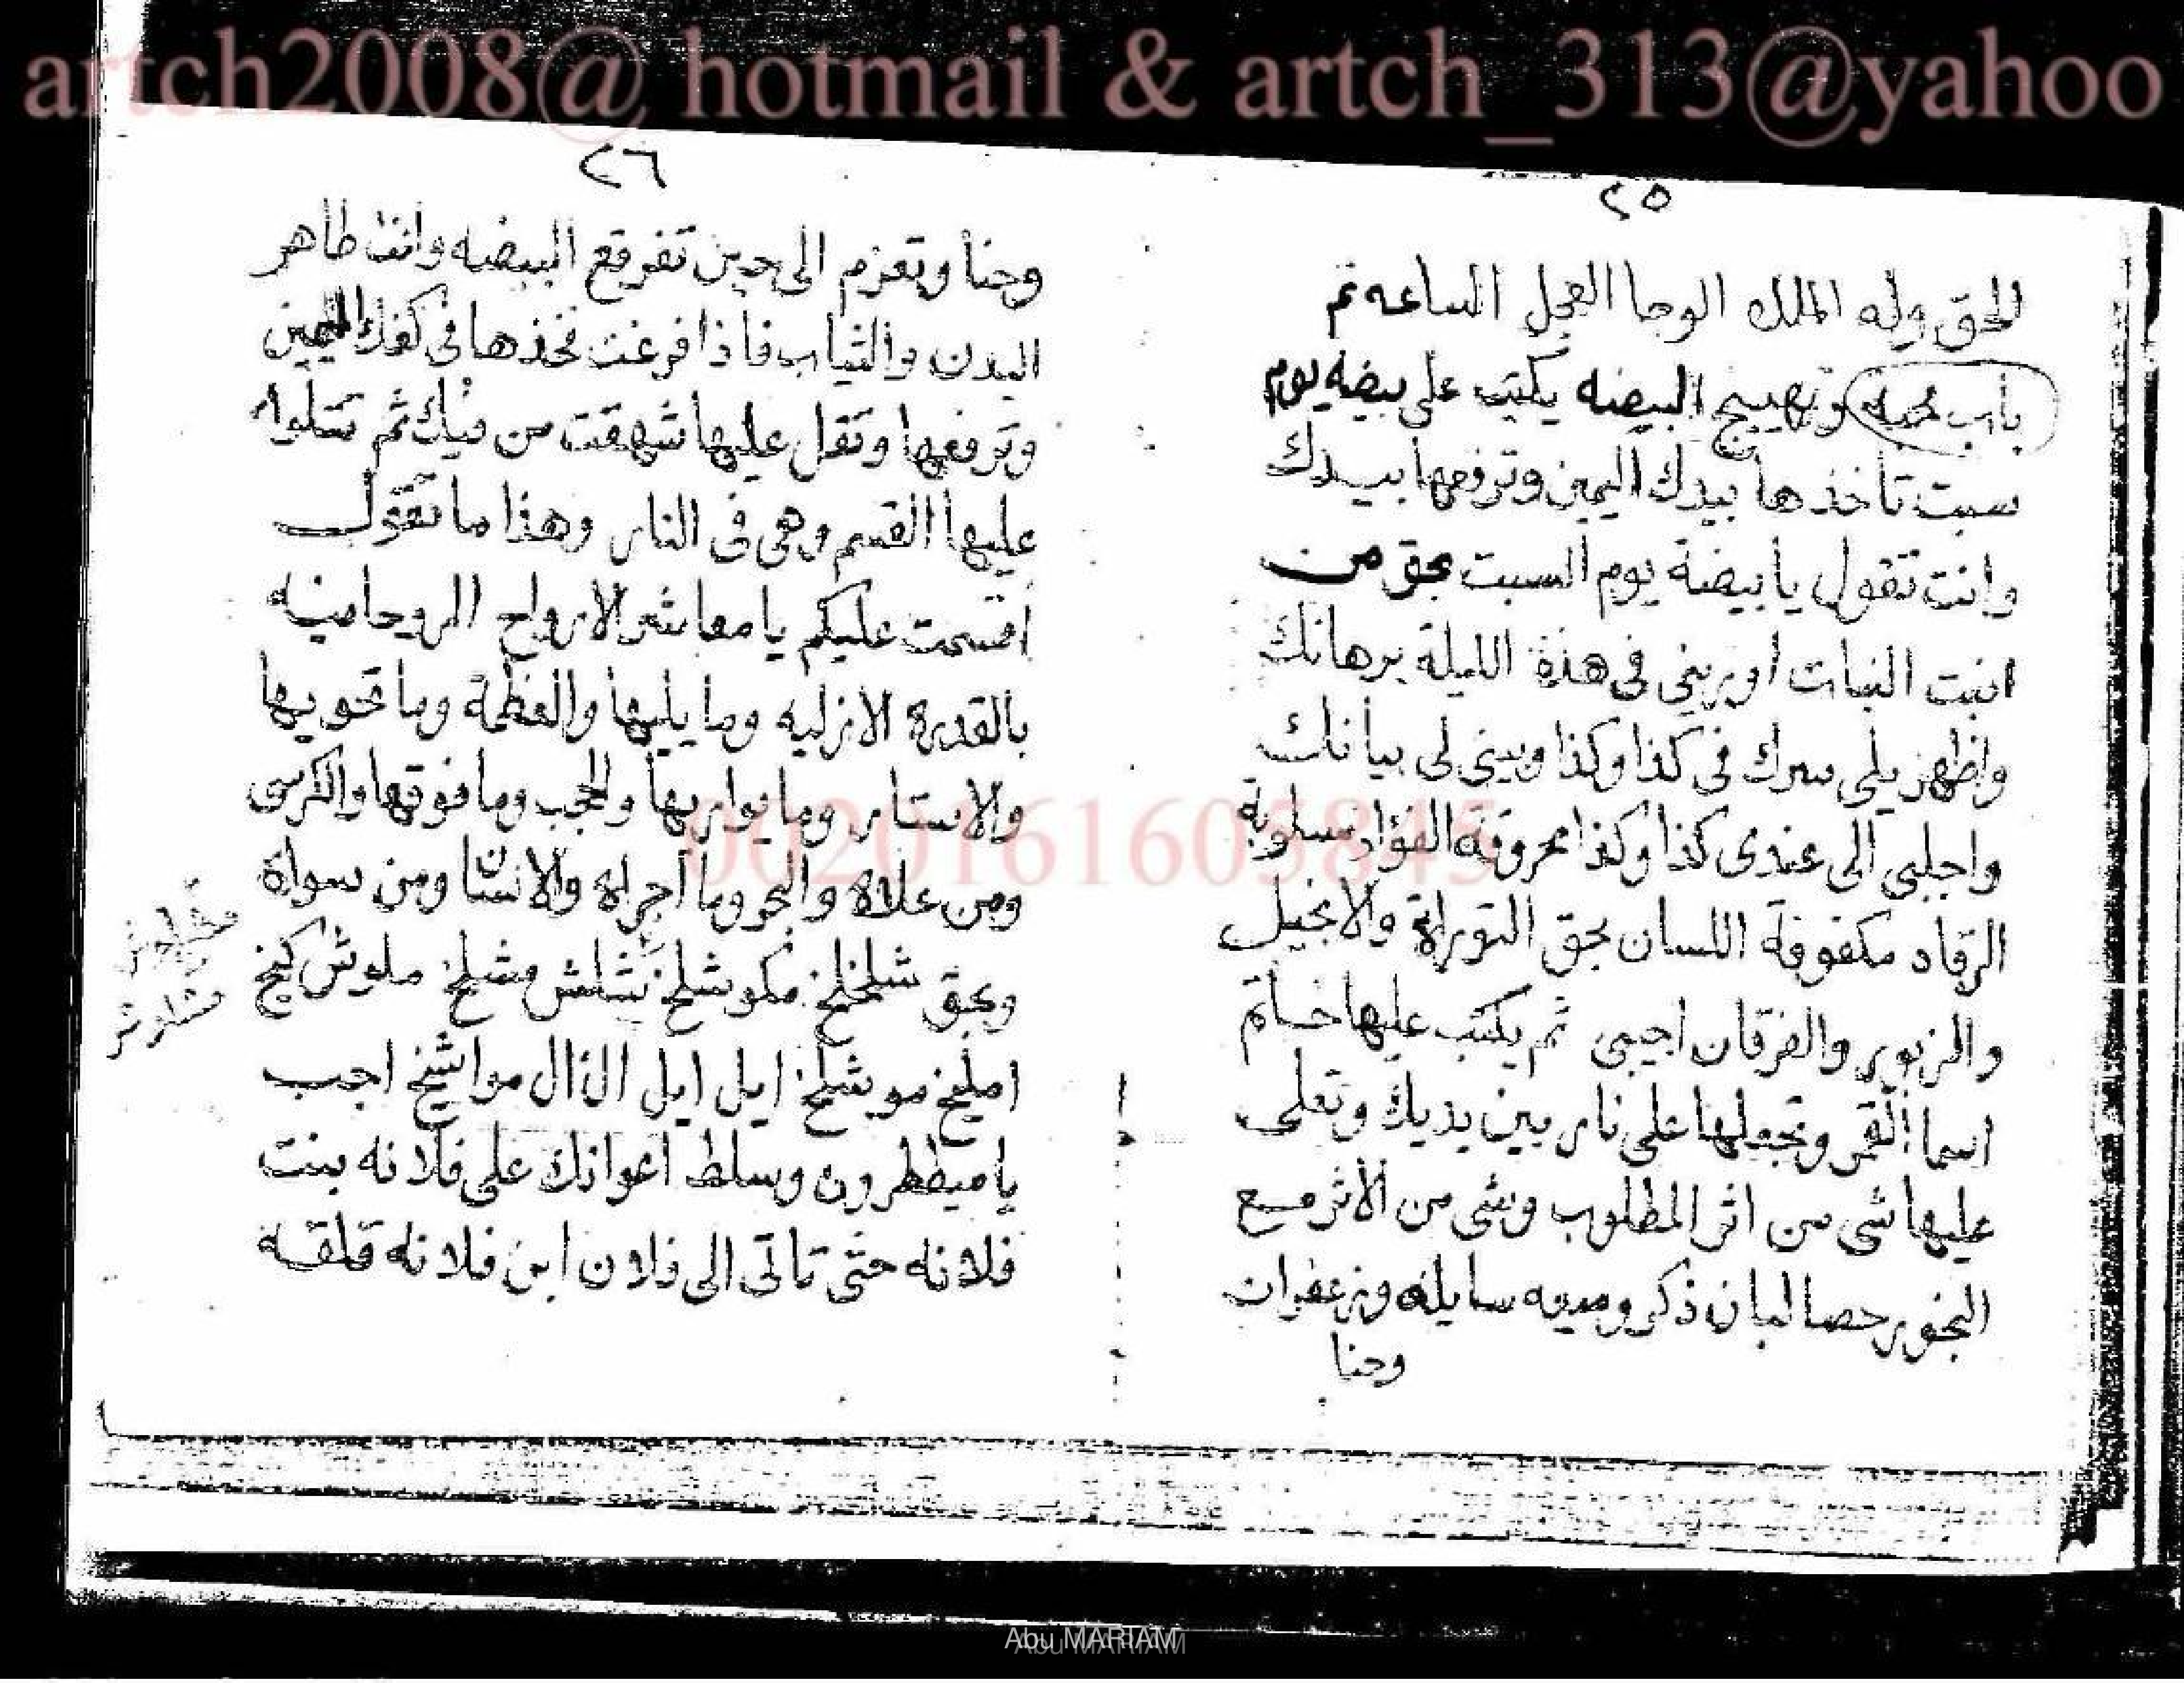 artch2008@ hotmail & artch_313@yahoo
٢٥
الحق وله الملك الوحا العجل الساعه تم
باب محبه وتهييج البيضه يكتب على بيضه يوم
سبت تاخذها بيدك اليمين وترفعها بيدك
وانت تقول يا بيضة يوم السبت بحق من
انبت النبات اوريني في هذة الليلة برهانك
واظهريلي سرك في كذا وكذا وبيني لى بيانك
واجلبي الى عندى كذا وكذا محروقة الفؤاد مسلوبة
الرقاد مكفوفة اللسان بحق التوراة والانجيل
والزبور والفرقان اجيبى ثم يكتب عليها خاتم
اسما القمر وتجعلها على نار بين يديك وتعلى
عليها شى من اثر المطلوب وشى من الاثر مع
البخور حصا لبان ذكر وميعه سايله وزعفران
وحنا
٢٦
وحنا وتعزم الى حين تفرقع البيضه وانت طاهر
البدن والثياب فاذا فرغت فخذها فى كفك اليمين
وترفعها وتقل عليها شهقت من فيك ثم تتلوا
عليها القسم وهى فى النار وهذا ما تقول
اقسمت عليكم يا معاشر الارواح الروحانيه
بالقدرة الازليه وما يليها والعظمة وما تحويها
والاستار وما يواريها والحجب وما فوقها والكرسى
ومن علاة والبحر وما اجراة والانسان ومن سواة
وبحق شلخلخ مكوشلخ نشلش مشلخ ملوش كيخ
امليخ مويشلخ ايل ايل ال ال مواشيخ اجب
يا ميططرون وسلط اعوانك على فلانه بنت
فلانه حتى تاتى الى فلان ابن فلانه قلقه
0020161605845
Abu MARIAM